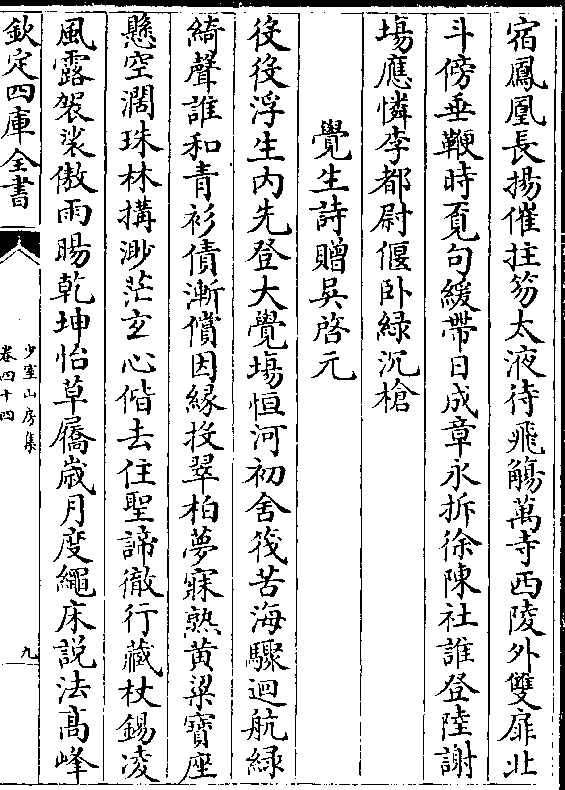 宿鳳凰長揚催拄笏太液待飛觴萬寺西陵外雙扉北
斗傍垂鞭時覔句緩帶日成章永拆徐陳社誰登陸謝
塲應憐李都尉偃卧緑沉槍
覺生詩贈吳啓元
役役浮生内先登大覺塲恒河初舍筏苦海驟迴航緑
綺聲誰和青衫債漸償因緣投翠柏夢寐熟黄粱寶座
懸空濶珠林搆渺茫玄心偕去住聖諦徹行藏杖錫凌
風露袈裟傲雨暘乾坤怡草屩歲月度繩床説法髙峰
欽定四庫全書
少室山房集
卷四十四
九